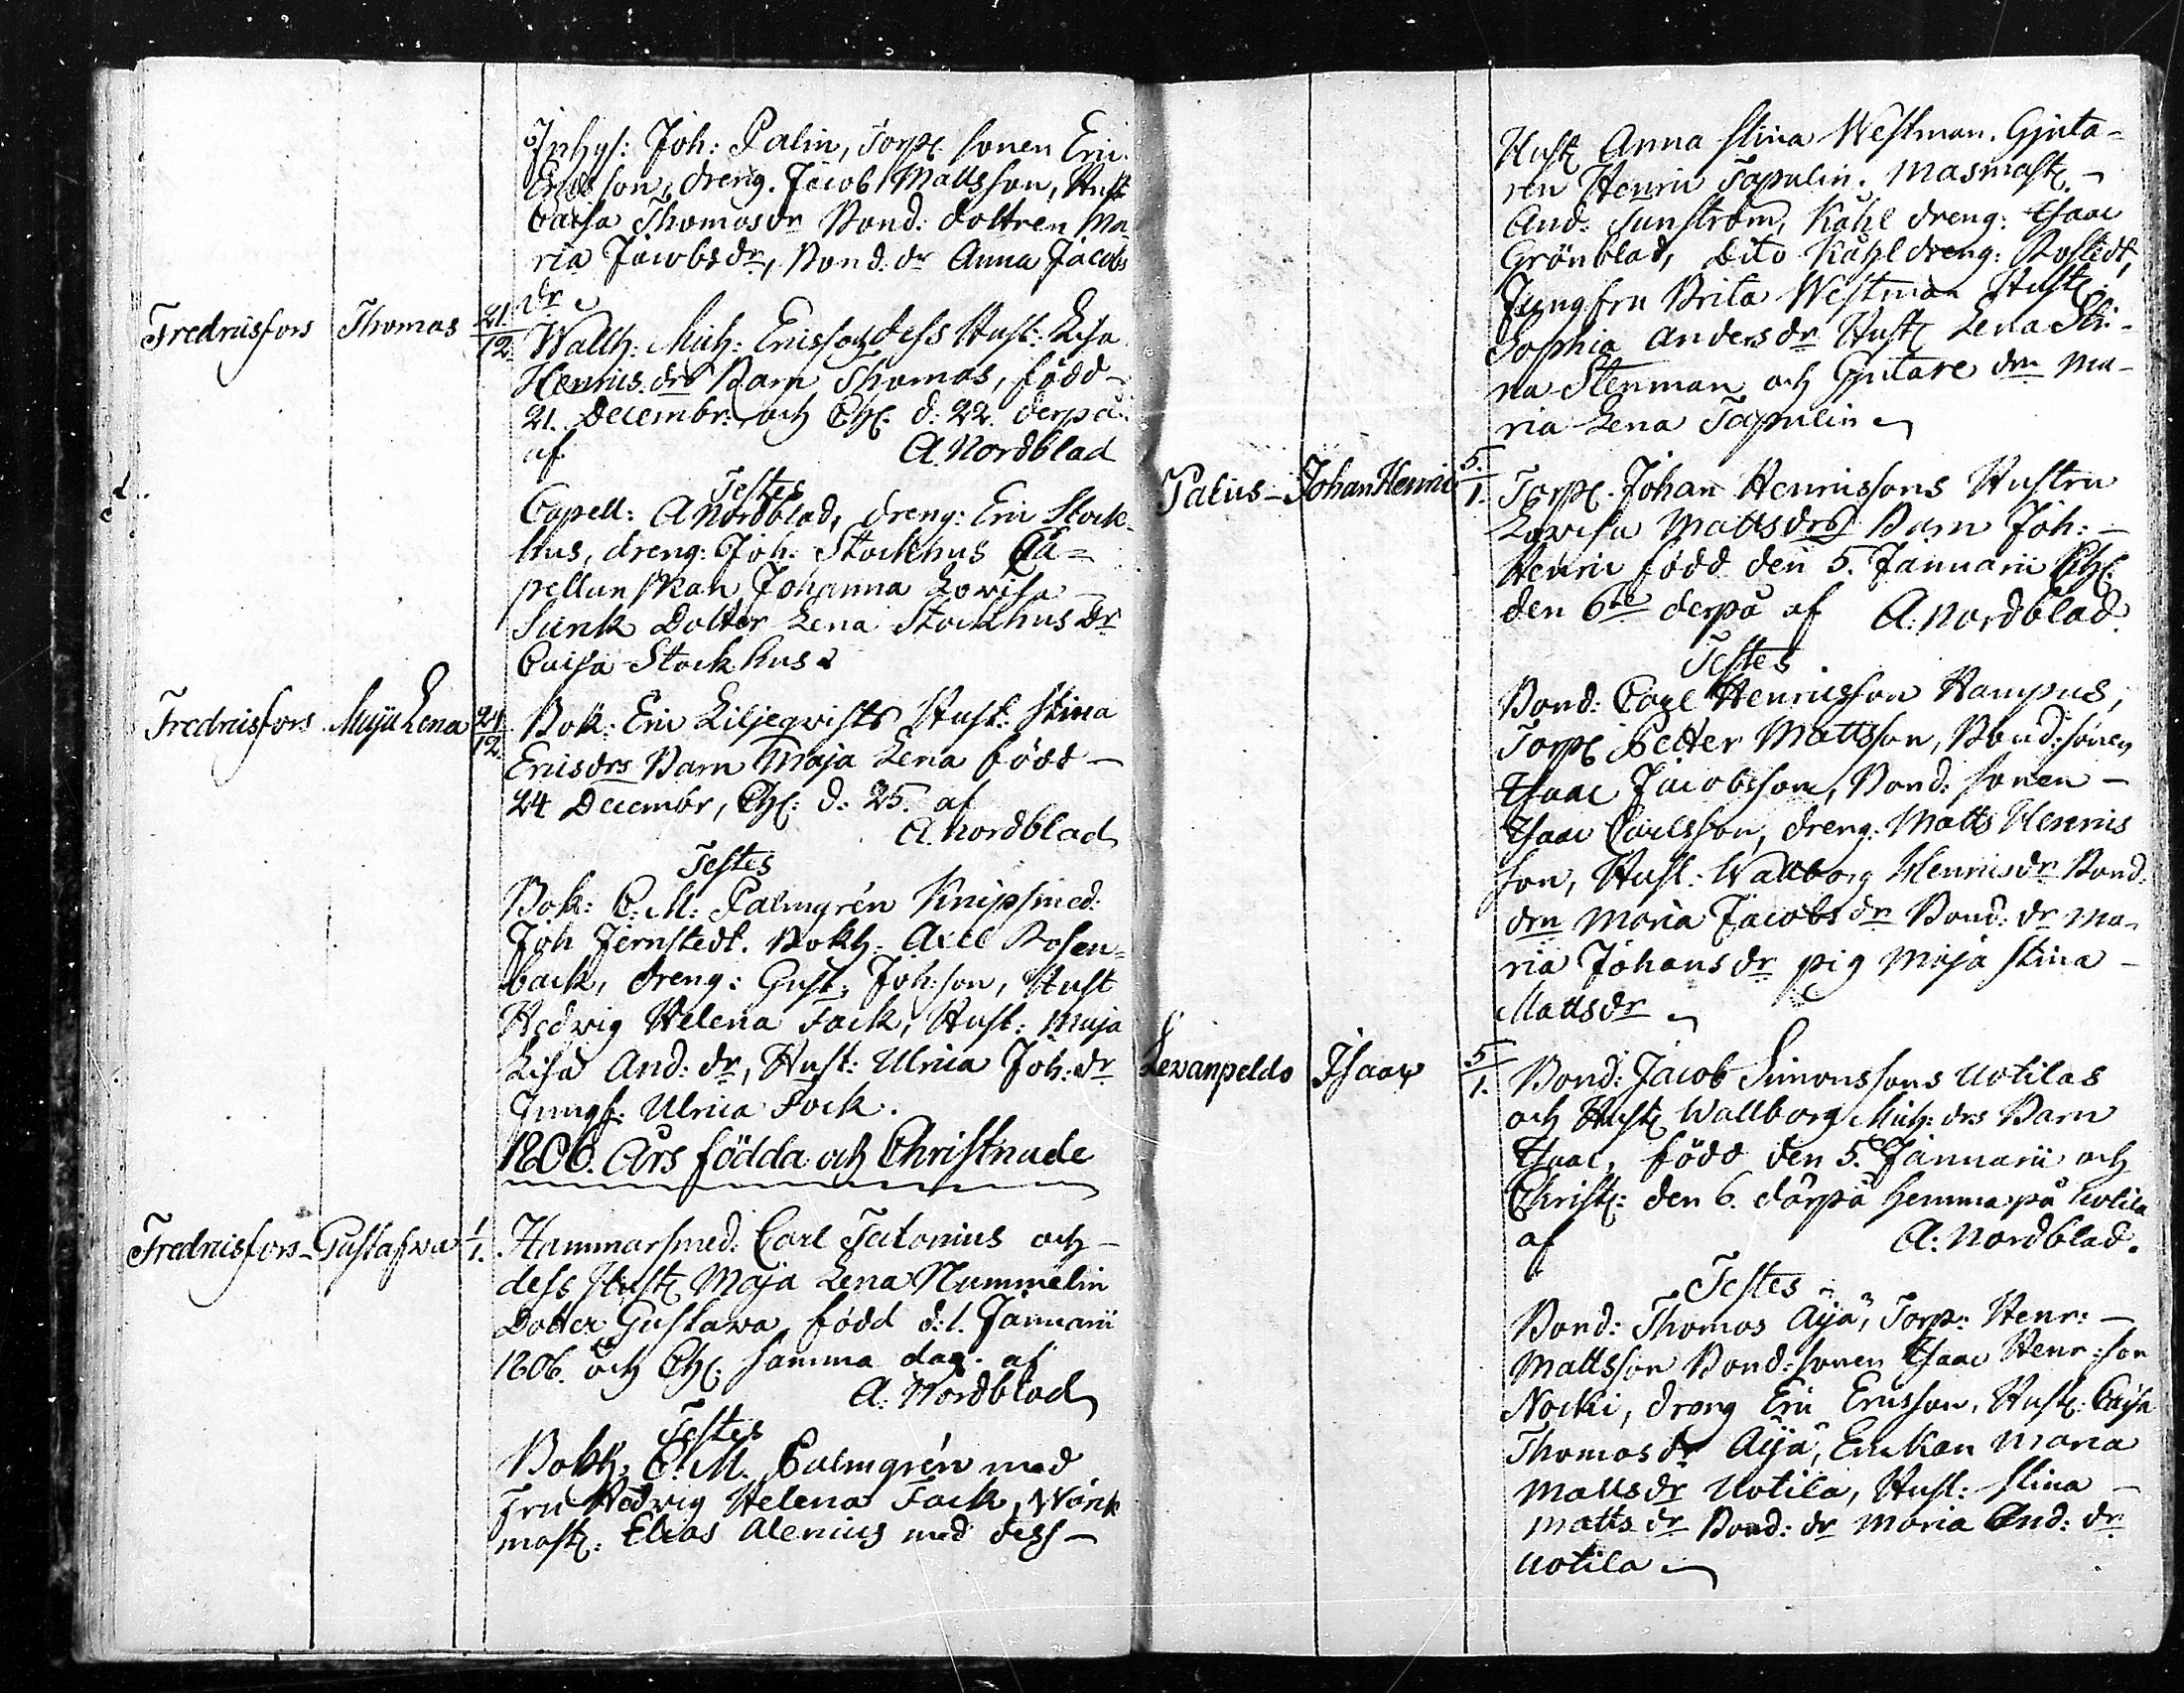 Inhys: Joh: Palin, Torp: sonen Eric
Ericsson, dreng. Jacob Mattsson, Hust
Caisa Thomasdr Bond: dottren Ma
ria Jacobsdr, Bond: dr Anna Jacobs
dr
Fredricsfors Thomas 21/12. Wallh: Mich: Ericss och dess Hust: Lisa
Henrics drs Barn Thomas, född
21. Decembr: och Chr: d: 22. derpå
af A. Nordblad
Testes
Capell: A Nordblad, dreng: Eric Stock
hus, dreng: Joh: Stockhus Ca=
pellanskan Johanna Lovisa
Sunk Dotter Lena Stockhus dr
Caisa Stockhus
Fredricsfors Maja Lena 24/12. Bok: Eric Liljeqvists Hust: Stina
Ericsdrs Barn Maja Lena född
24 Decembr, Chr: d: 25. af
A. Nordblad
Testes
Bok: C: M: Palmgrén Knipsmed:
Joh Jernstedt. Bokh: Axel Rosen=
back, dreng: Gust: Joh:son, Hust
Hedvig Helena Fack, Hust: Maja
Lisa And: dr, Hust: Ulrica Joh: dr
Jungf: Ulrica Fock.
1806. Års födda och Christnade
Fredricsfors Gustafwa 1/1. Hammarsmed: Carl Talonius och
dess Hust: Maja Lena Nummelin
Dotter Gustava, född d: 1. Januarii
1806. och Chr: samma dag. af
A: Nordblad
Testes
Bokh: C. M. Palmgrén med
Fru Hedvig Helena Fack, Wärk
mast: Elias Alenius med dess
Hust: Anna Stina Westman. Gjuta-
ren Henric Tapulin. Masmast:
And: Sunström, Kåhl dreng: Isaac
Grönblad, Dito Kåhl dreng: Rostedt,
Jungfru Brita Westman Hust:
Sophia Andersdr Hust: Lena Sti-
na Stenman och Gjutare drn Ma-
ria Lena Tapulin
Palus Johan Henric 5/1. Torp: Johan Henricssons Hustru
Lovisa Mattsdrs Barn Joh:
Henric född den 5. Januarii Chr:
den 6te derpå af A: Nordblad.
Testes
Bond: Carl Henricsson Hampus,
Torp: Petter Mattsson, Bond: sonen
Isaac Jacobsson, Bond: sonen
Isaac Carlsson, dreng: Matts Henrics
son, Hust: Wallborg Henricsdr Bond:
drn Maria Jacobsdr Bond: dr Ma-
ria Johansdr pig Maja Stina
Mattsdr
Levanpeldo Isaac 5/1. Bond: Jacob Simonssons Uotilas
och Hust: Wallborg Mich: drs Barn
Isaac, född den 5. Januarii och
Christ: den 6. därpå hemma på Uotila
af A: Nordblad.
Testes
Bond: Thomas Äijä, Torp: Henr:
Mattsson Bond: sonen Isaac Henr: son
Nocki, dreng Eric Ericsson, Hust: Caisa
Thomasdr Äijä, Enckan Maria
Mattsdr Uotila, Hust: Stina
Matts dr Bond: dr Maria And: dr
Uotila